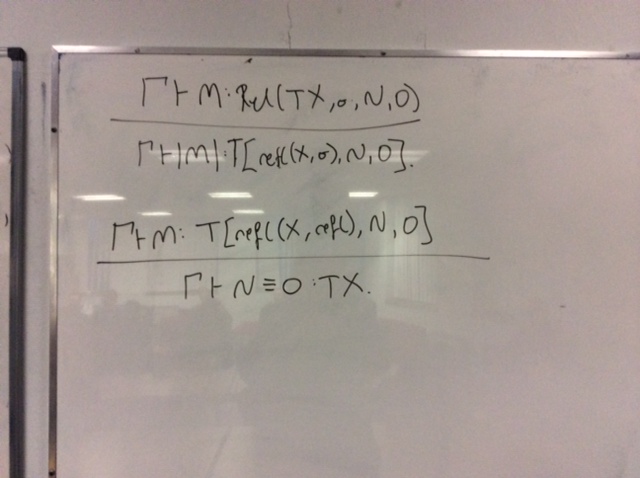 Γ ⊢ M : Rel(TX, σ, N, O)
Γ ⊢ |M| : T[refl(X, σ), N, O].
Γ ⊢ M : T[refl(X, refl), N, O]
Γ ⊢ N ≡ O : TX.